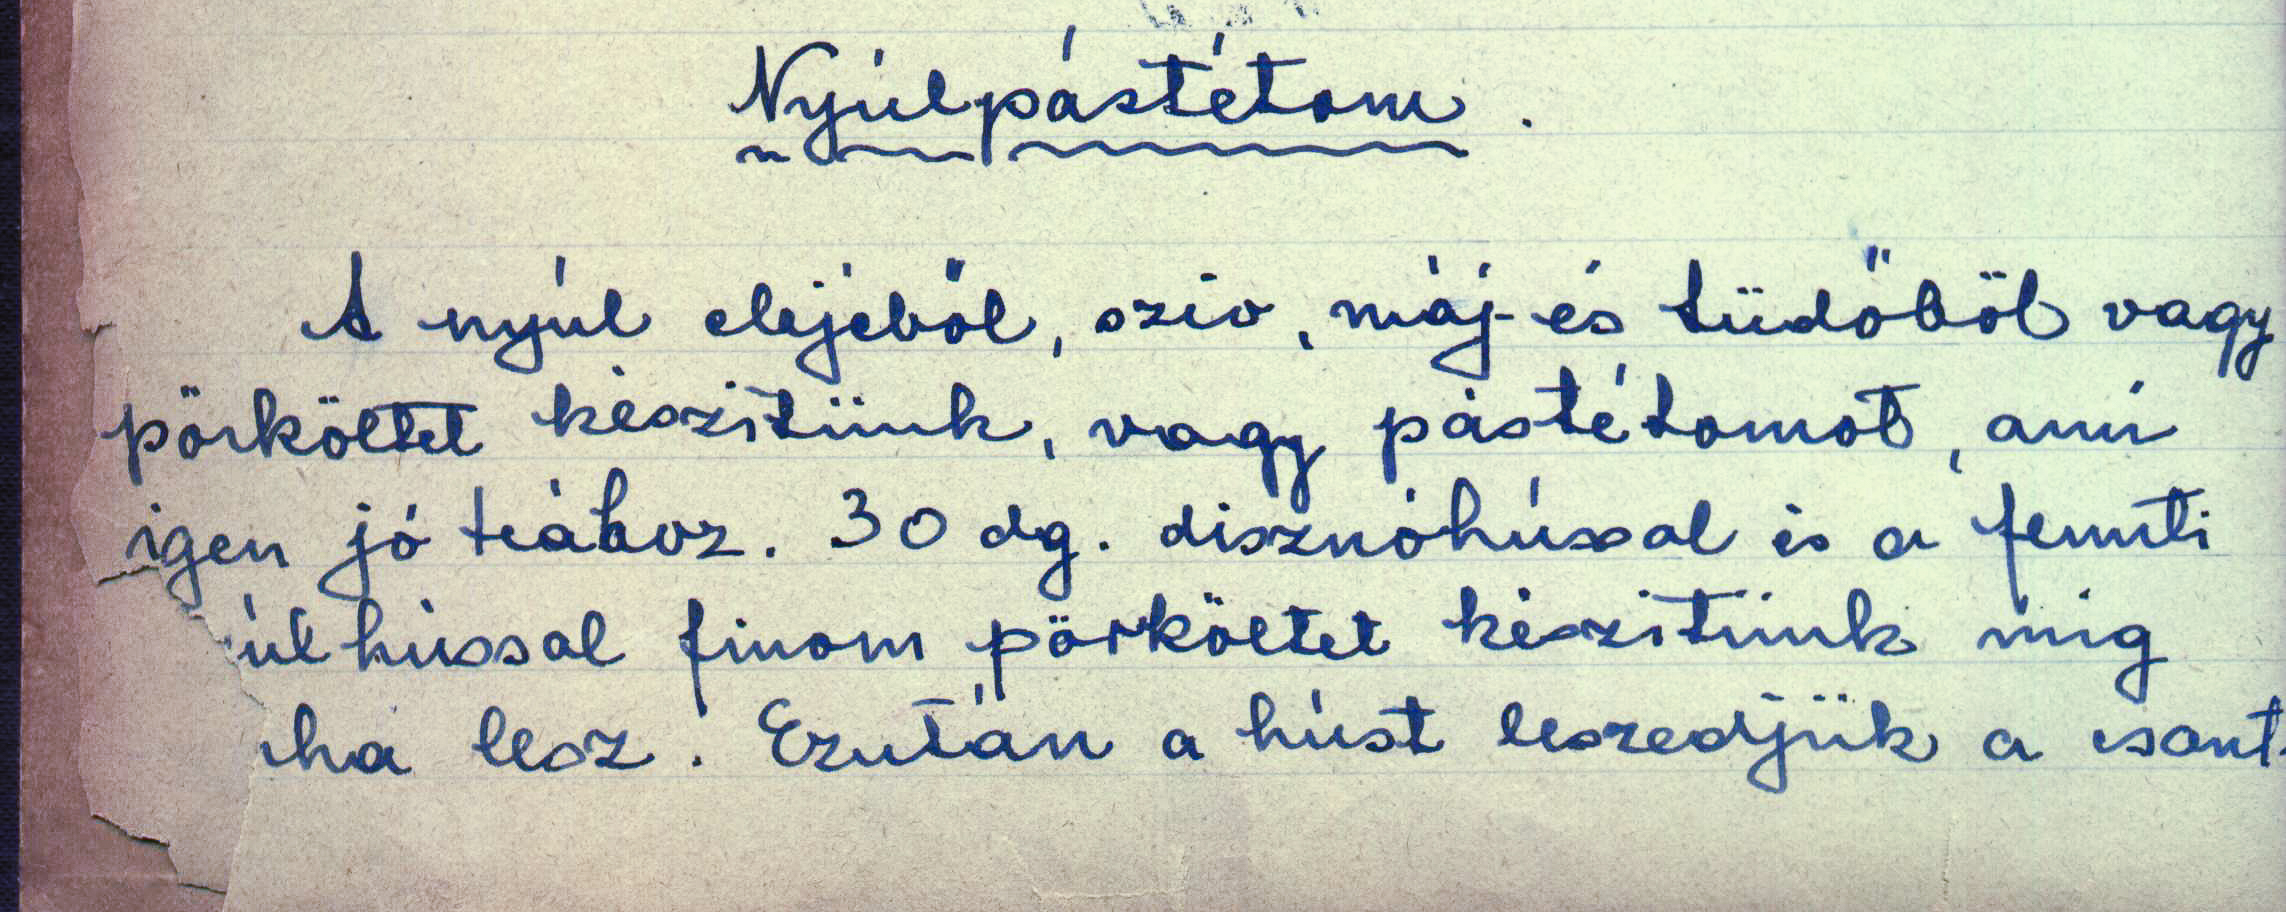 Nyúlpástétom.
A nyúl elejéből, sziv, máj-és tüdőből vagy
pörköltet készitünk, vagy pástétomot, ami
igen jó teához. 30 dg. disznóhússal és a fennti
úlhússal finom pörköltet készitünk mig
ha lesz. Ezután a húst leszedjük a csont